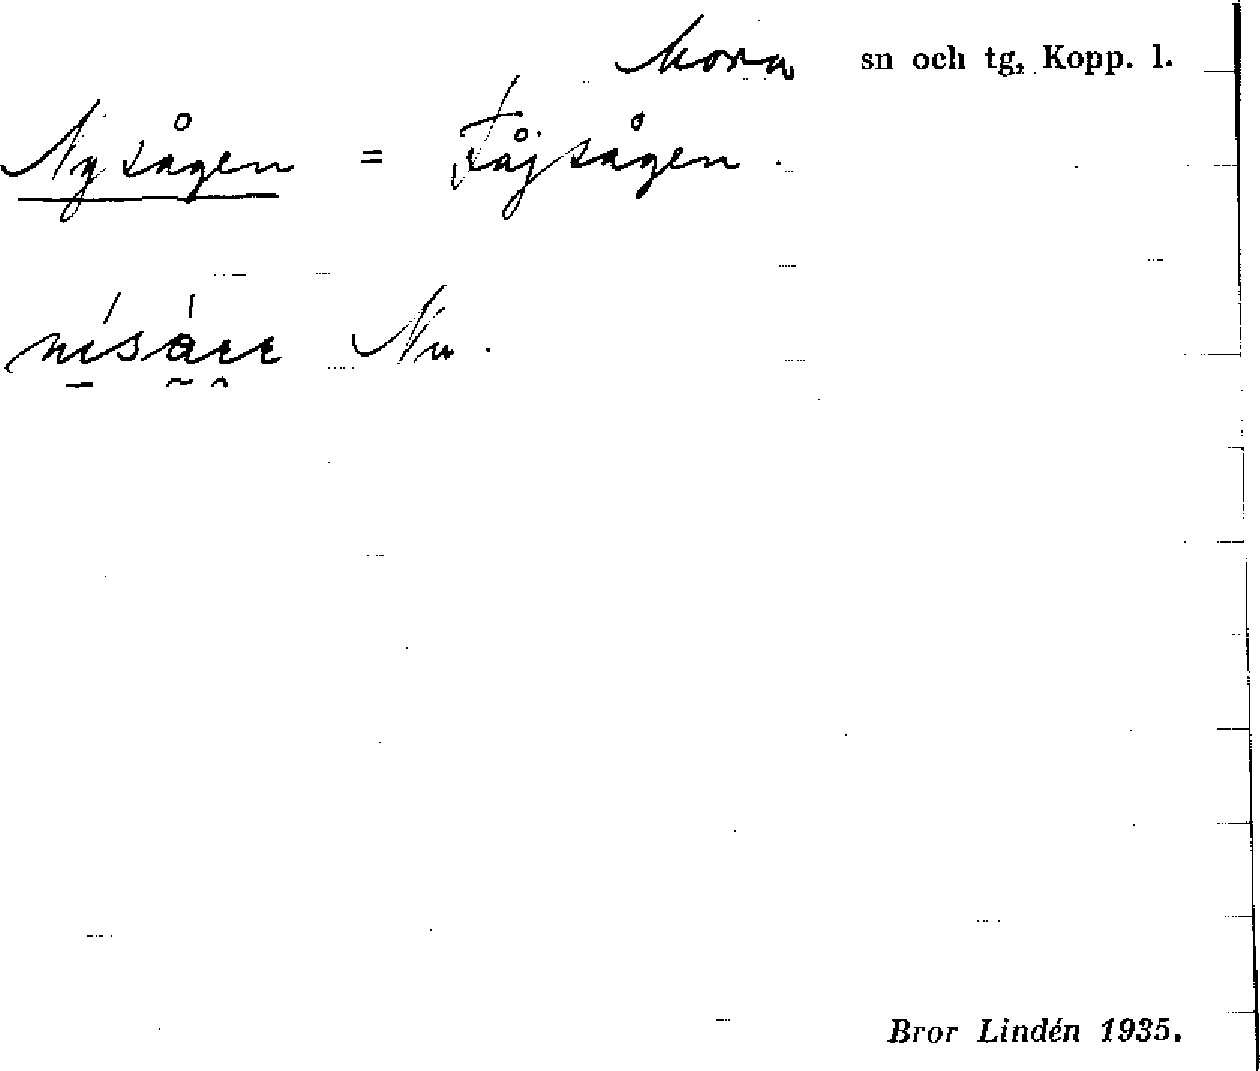 Mora sn och tg, Kopp. l.
Nysågen = Fåjsågen.
Nu.
Bror Lindén 1935.